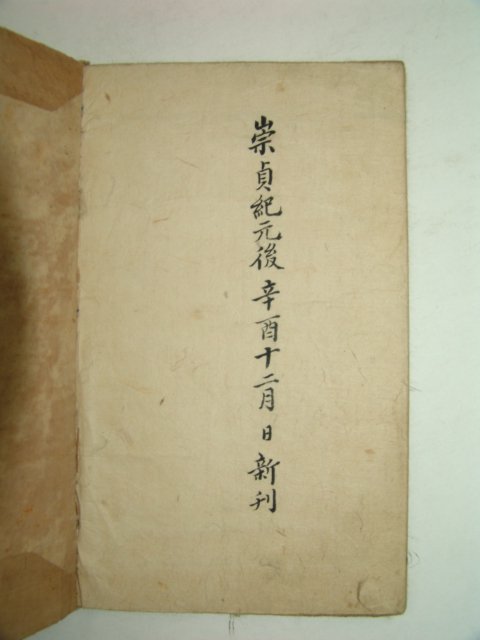 崇貞紀元後 辛酉十二月 日 新刊